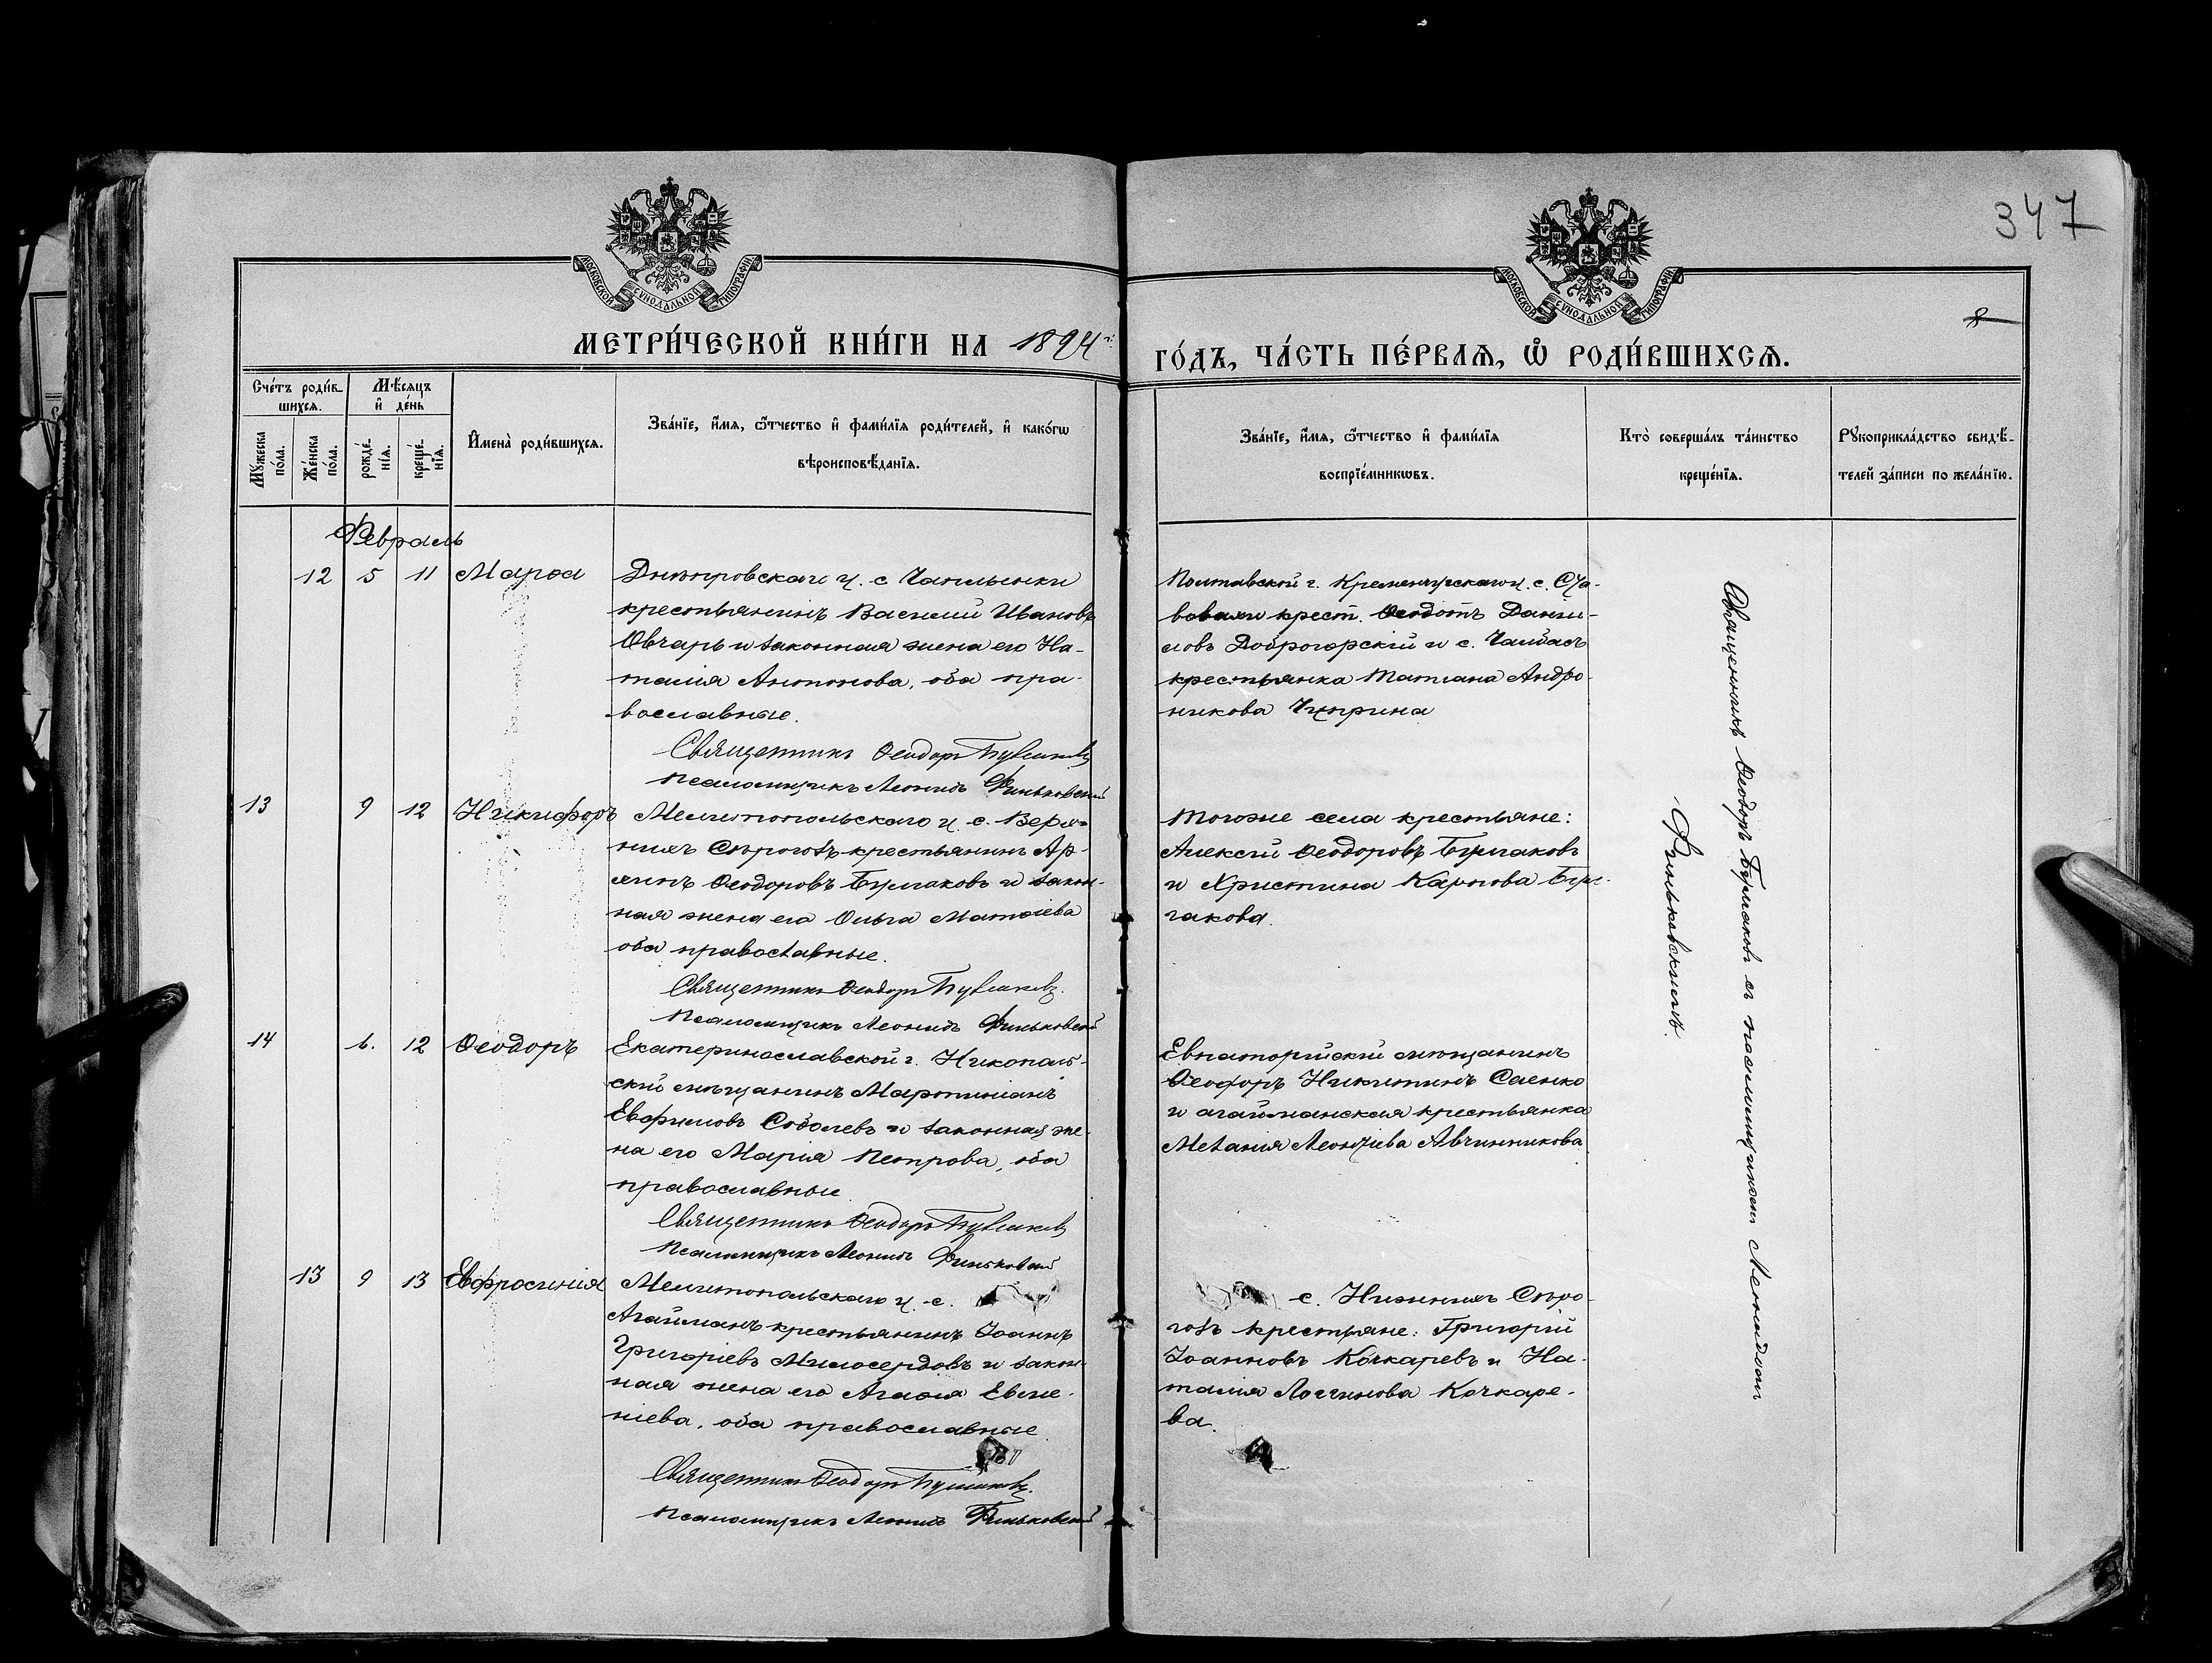 347
МОСКОВСКОЙ СѴНОДАЛЬНОЙ ТИПОГРАФІИ
МОСКОВСКОЙ СѴНОДАЛЬНОЙ ТИПОГРАФІИ
8
МЕТРИ́ЧЕСКОЙ КНИ́ГИ НА 1894 г.
ГО́ДЪ, ЧА́СТЬ ПЕ́РВАѦ, Ѽ РОДИ́ВШИХСѦ.
Сче́тъ роди́в-
шихсѧ.
Мѣ́сѧцъ
и҆ де́нь
Мꙋ́жеска по́ла.
Же́нска по́ла.
рожде́-нїѧ.
креще́-нїѧ.
И҆мена̀ роди́вшихсѧ.
Зва́нїе, и҆́мѧ, ѻ҆́тчество и҆ фами́лїѧ роди́телей, и҆ како́гѡ
вѣроисповѣ́данїѧ.
Зва́нїе, и҆́мѧ, ѻ҆́тчество и҆ фами́лїѧ
воспрїе́мникѡвъ.
Кто̀ соверша́лъ та́инство
креще́нїѧ.
Рꙋкоприкла́дство свидѣ́-
телей за́писи по жела́нїю.
Февраль
12 5 11 Марѳа
Днѣпровскаго у. с Чаплынки
крестьянинъ Василий Ивановъ
Овчарь и законная жена его На-
талия Антонова, оба пра-
вославные.
Священникъ Ѳеодоръ Булгаковъ
Псаломщикъ Леонидъ Финьковский
Полтавской г. Кременчугскаго у. с.
крест. Ѳеодотъ Дани-
ловъ Доброгорский и с. Чалбасъ
крестьянка Татиана Андро-
никова Чуприна
13 9 12 Никифоръ
Мелитопольскаго у. с. Верх-
нихъ Сѣрогозъ крестьянинъ
Ѳеодоровъ Булгаковъ и закон-
ная жена его Ольга Матѳіева
оба православные.
Священникъ Ѳеодоръ Булгаковъ.
Псаломщикъ Леонидъ Финьковский
Тогоже села крестьяне:
Алексий Ѳеодоровъ Булгаковъ
и Христина Карпова Бул-
гакова.
14 6. 12 Ѳеодоръ
Екатеринославской г. Никополь-
ский мѣщанинъ Мартиніанъ
Евфимовъ Соболевъ и законная же-
на его Мария Петрова, оба
православные.
Священникъ Ѳеодоръ Булгаковъ
Псаломщикъ Леонидъ Финьковский
Евпаторийский мѣщанинъ
Ѳеодоръ Никитинъ Саенко
и агайманская крестьянка
Мелания Леонтіева Авчинникова
13 9 13 Евфросинія
Мелитопольскаго у. с.
Агайманъ крестьянинъ Іоаннъ
Григоріевъ Милосердовъ и закон-
ная жена его Агаѳия Евге-
ніева, оба православные.
Священникъ Ѳеодоръ Булгаковъ.
Псаломщикъ Леонидъ Финьковский
с. Нижнихъ Сѣро-
гозъ крестьяне: Григорій
Іоанновъ Кочкаревъ и На-
талия Логгинова Кочкаре-
ва.
Священникъ Ѳеодоръ Булгаковъ съ псаломщикомъ Леонидомъ
Финьковскимъ.